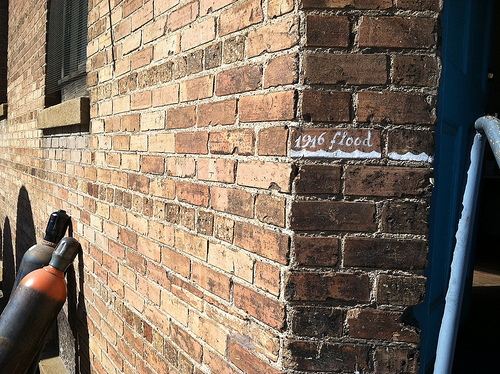 1916 flood